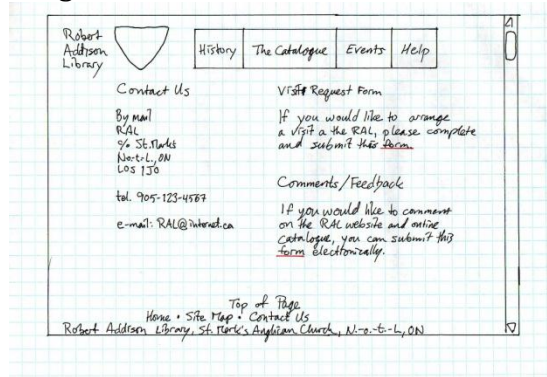 Robert
Addison
Library
History The Catalogue Events Help
Contact Us
By mail
RAL
c/o St. Marks
N-o-t-L, ON
L0S 1J0
tel. 905-123-4567
e-mail: RAL@internet.ca
Visit Request Form
If you would like to arrange
a visit a the RAL, please complete
and submit this form.
Comments/Feedback
If you would like to comment
on the RAL website and online
catalogue, you can submit this
form electronically.
Top of Page
Home • Site Map • Contact Us
Robert Addison Library, St. Mark's Anglican Church, N.-o.-t.-L, ON